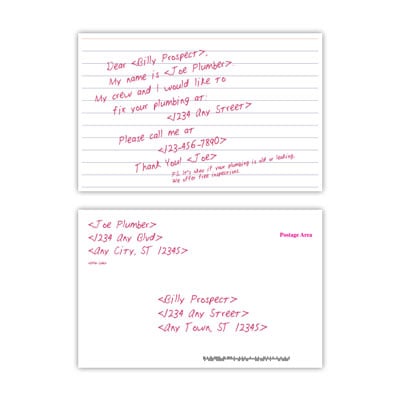 Dear <Billy Prospect>,
My name is <Joe Plumber>.
My crew and I would like to
fix your plumbing at:
<1234 Any Street>
Please call me at
<123-456-7890>
Thank You! <Joe>
P.S. It's okay if your plumbing is old or leaking.
We offer free inspections.
<Joe Plumber>
<1234 Any Blvd>
<Any City, ST 12345>
Postage Area
<Billy Prospect>
<1234 Any Street>
<Any Town, ST 12345>